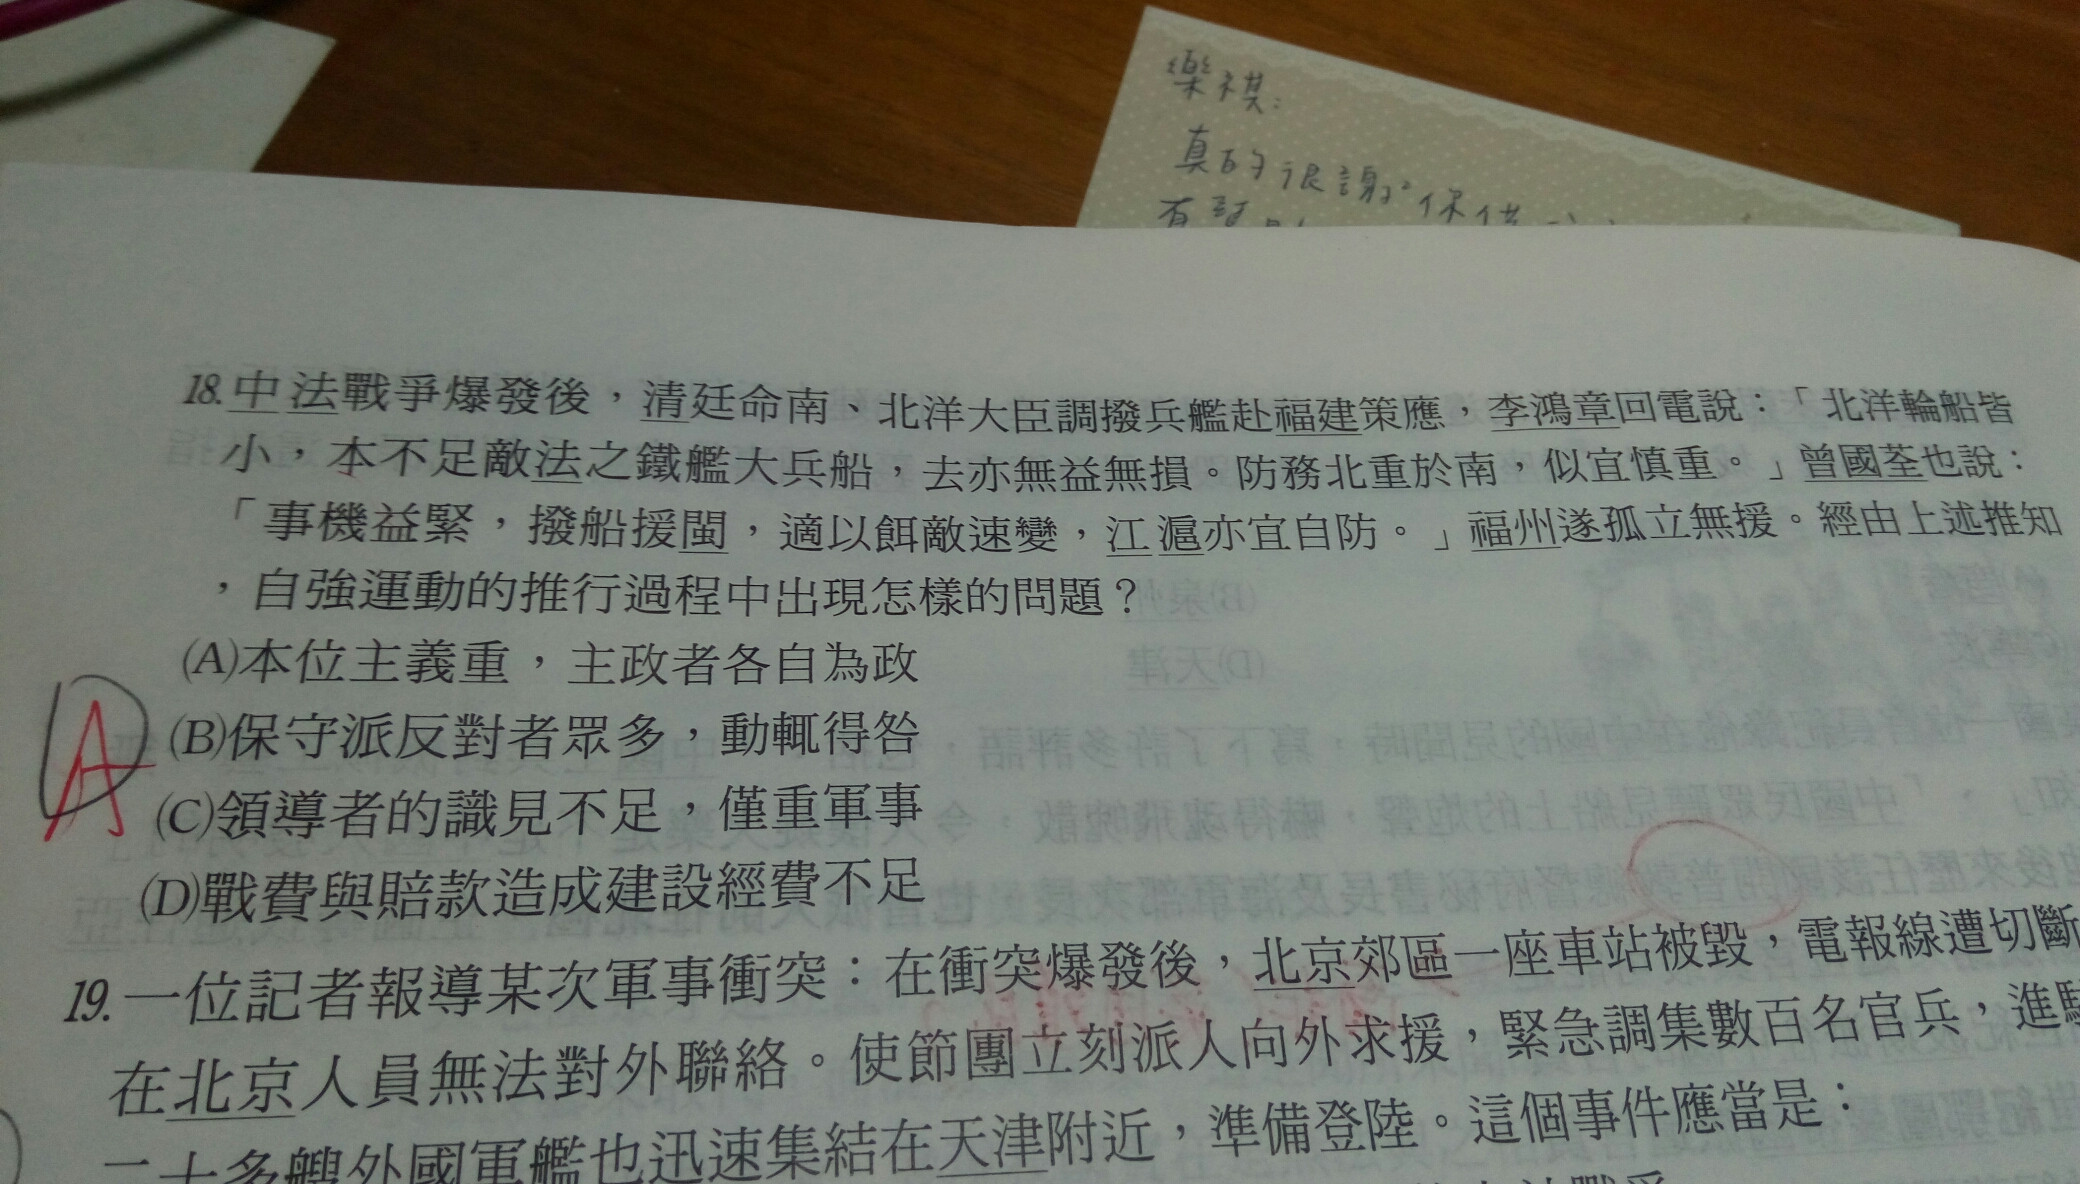 樂祺:
真的很謝謝保
18.中法戰爭爆發後，清廷命南、北洋大臣調撥兵艦赴福建策應，李鴻章回電說：「北洋輪船皆
小，本不足敵法之鐵艦大兵船，去亦無益無損。防務北重於南，似宜慎重。」曾國荃也說：
「事機益緊，撥船援閩，適以餌敵速變，江滬亦宜自防。」福州遂孤立無援。經由上述推知
，自強運動的推行過程中出現怎樣的問題？
(A)本位主義重，主政者各自為政
A
(B)保守派反對者眾多，動輒得咎
(C)領導者的識見不足，僅重軍事
(D)戰費與賠款造成建設經費不足
19.一位記者報導某次軍事衝突：在衝突爆發後，北京郊區一座車站被毀，電報線遭切斷
在北京人員無法對外聯絡。使節團立刻派人向外求援，緊急調集數百名官兵，進
二十多艘外國軍艦也迅速集結在天津附近，準備登陸。這個事件應當是：